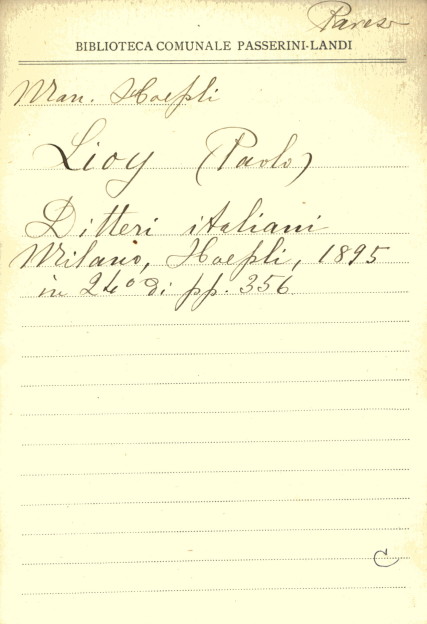 Pavesi
BIBLIOTECA COMUNALE PASSERINI-LANDI
Man. Hoepli
Lioy (Paolo)
Ditteri italiani
Milano, Hoepli, 1895
in 24º di pp. 356
C